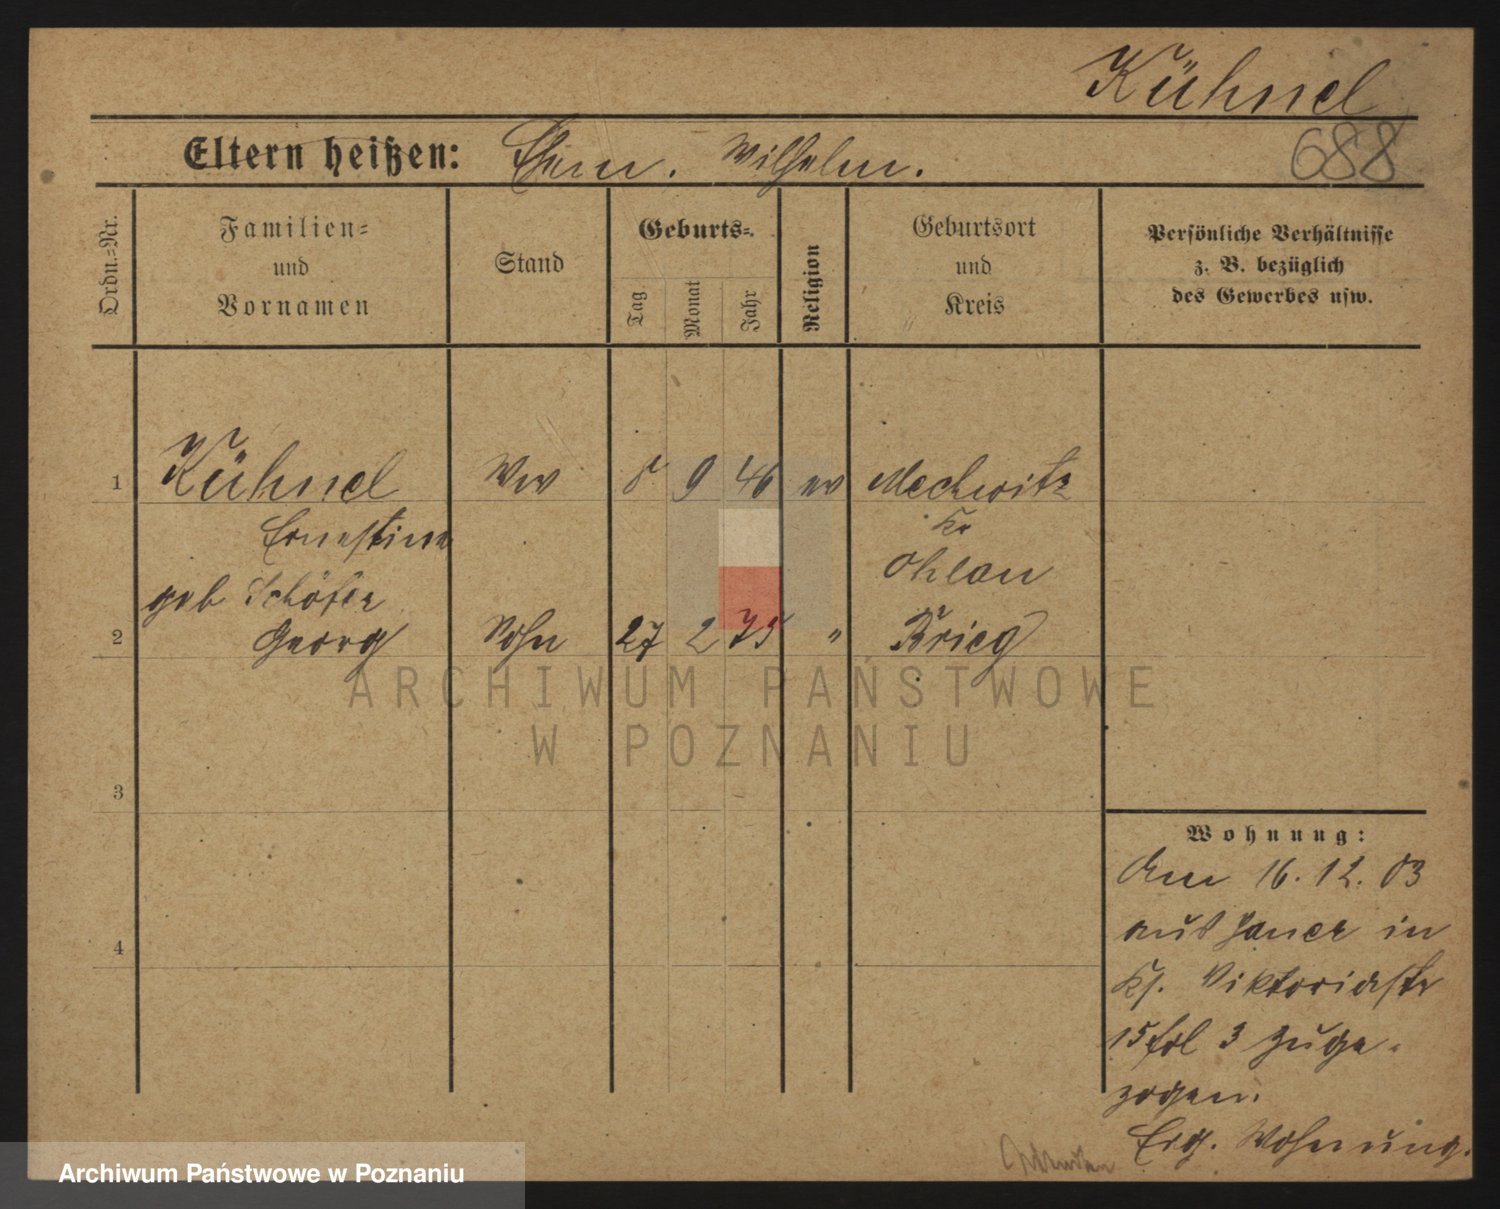 Kühnel
Eltern heißen: Ehem. Wilhelm.
688
Ordn.-Nr.
Familien-
und
Vornamen
Stand
Geburts-
Tag
Monat
Jahr
Religion
Geburtsort
und
Kreis
Persönliche Verhältnisse
z. B. bezüglich
des Gewerbes usw.
1 Kühnel Ww 8 9 46 ev Mechwitz
Ernestine Kr
Ohlau
geb Schöfer
2 Georg Sohn 27 2 75 " Brieg
ARCHIWUM PAŃSTWOWE
W POZNANIU
3
4
Wohnung:
Am 16.12.03
aus Jauer in
Viktoriastr
15 3 zuge-
zogen.
Wohnung.
Archiwum Państwowe w Poznaniu